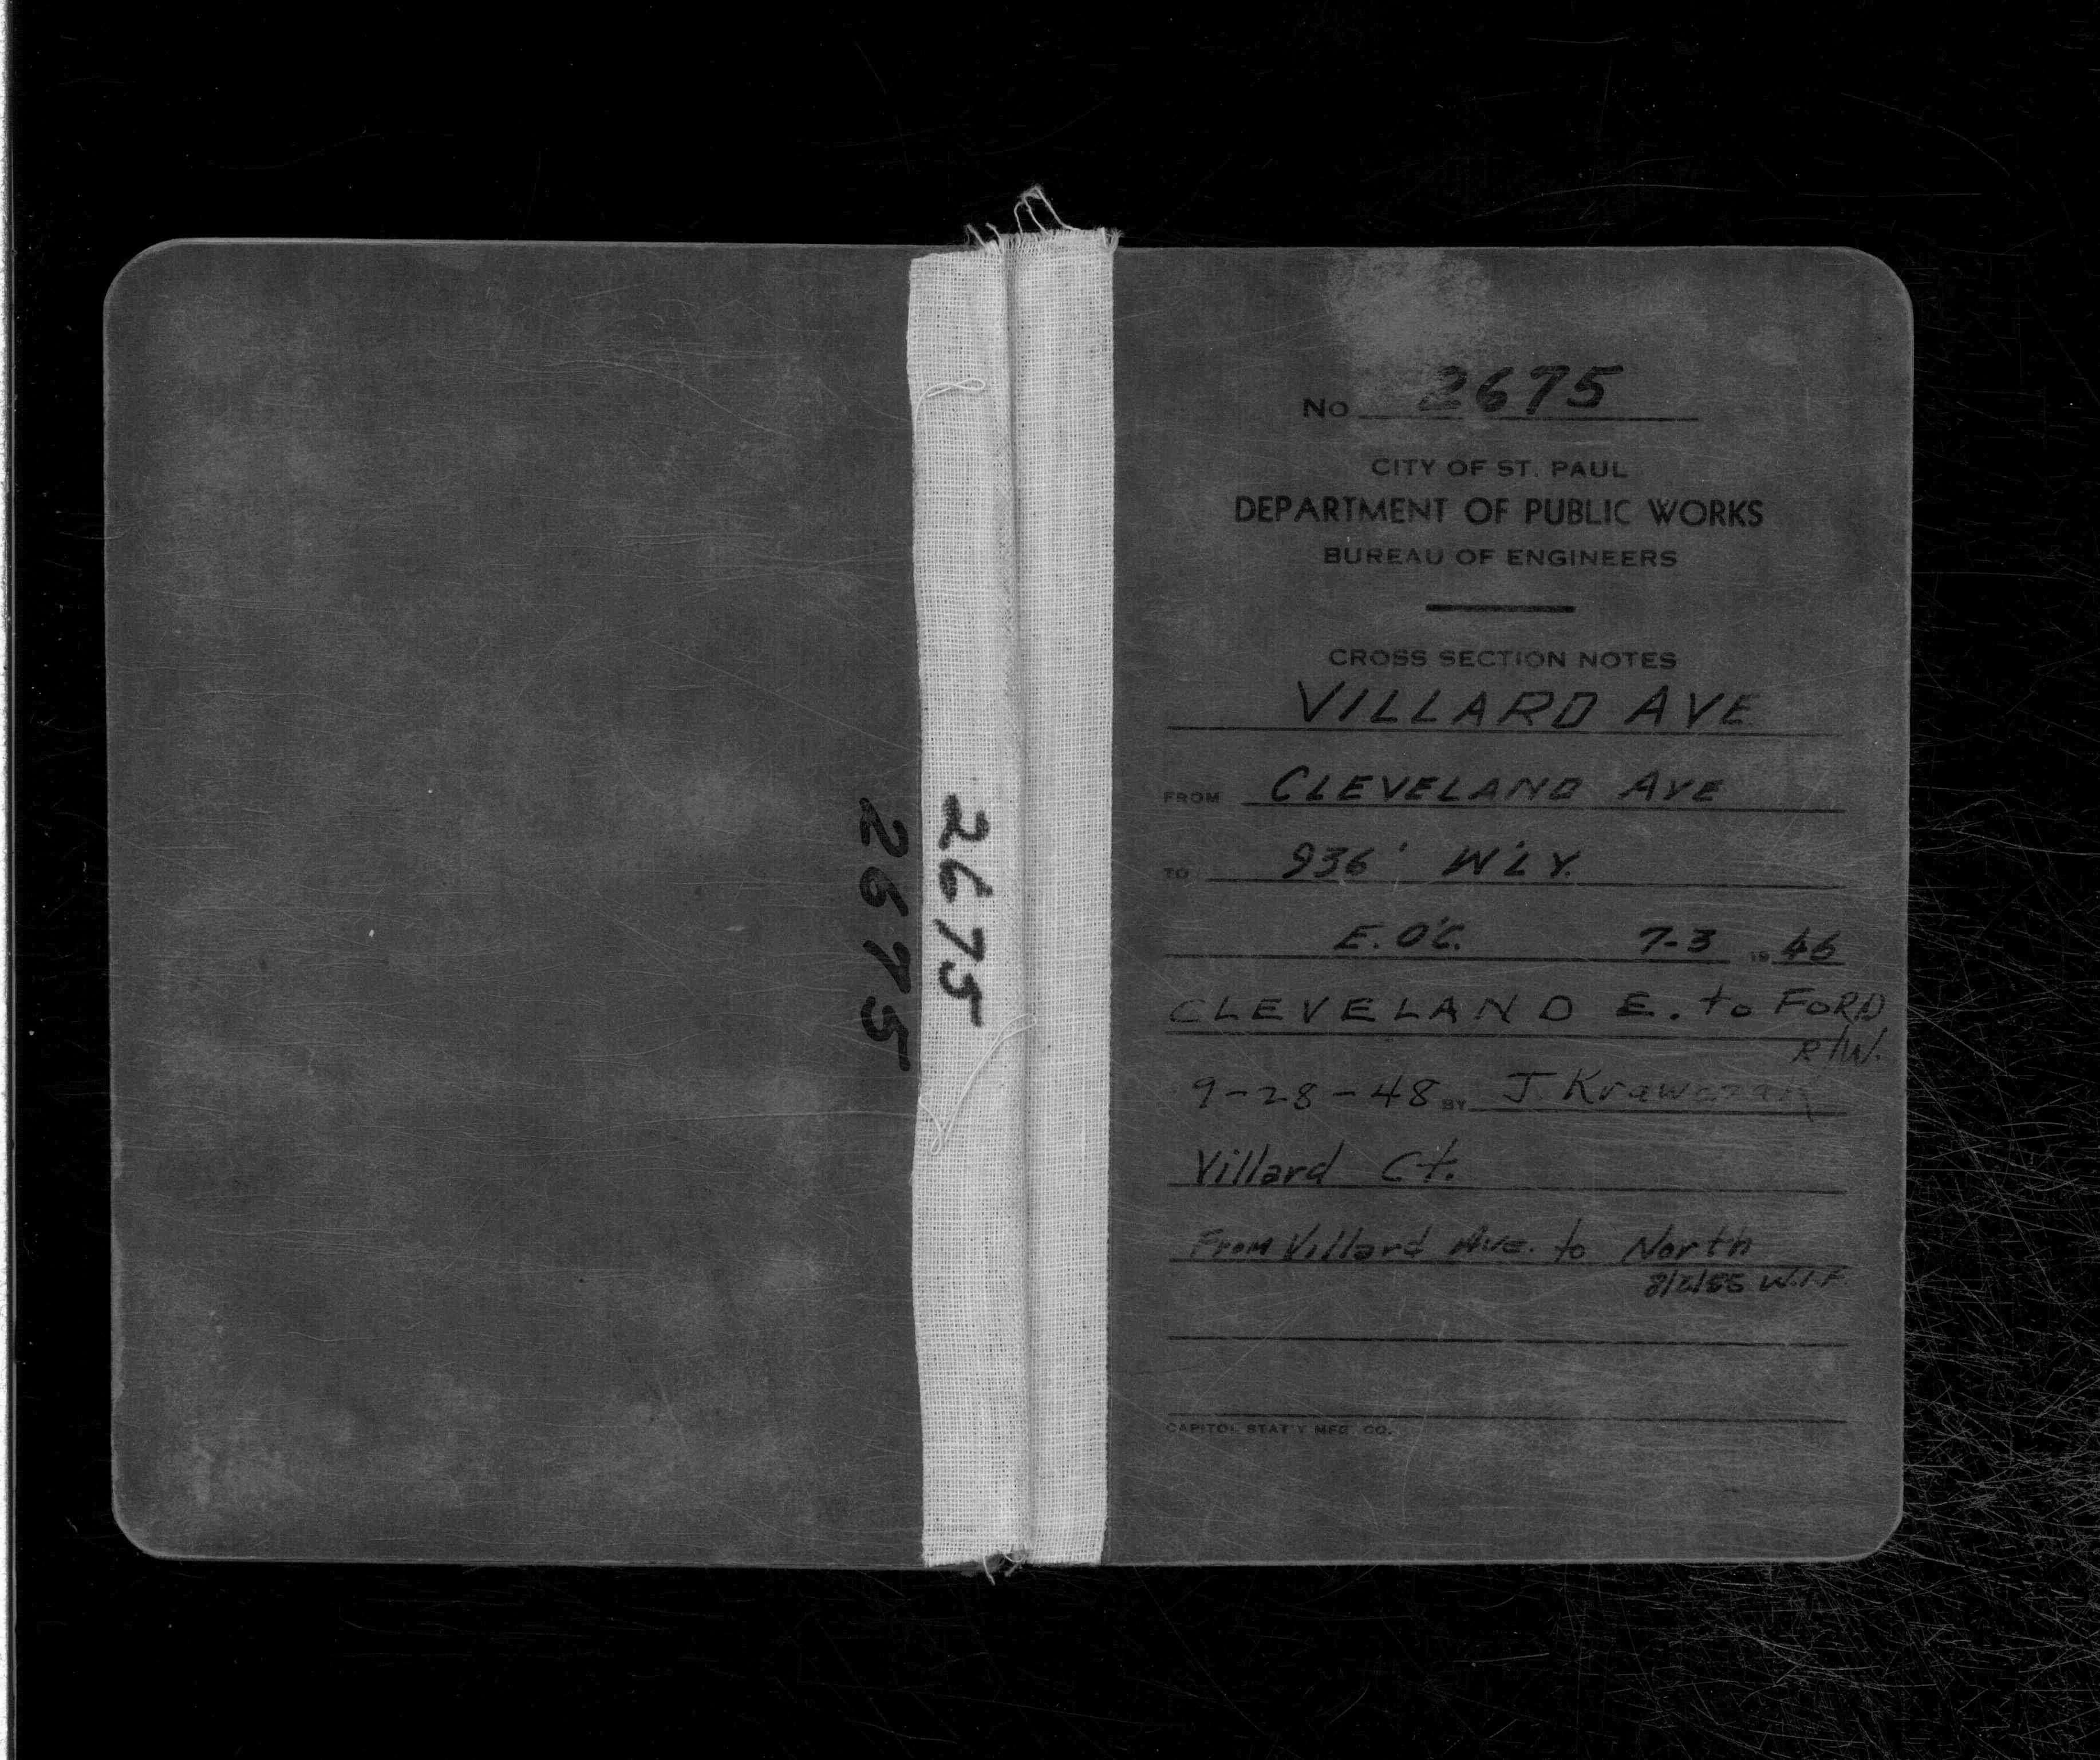 2675
2675
No 2675
CITY OF ST. PAUL
DEPARTMENT OF PUBLIC WORKS
BUREAU OF ENGINEERS
CROSS SECTION NOTES
VILLARD AVE
FROM CLEVELAND AVE
TO 936' W'LY.
E. O'C. 7-3 1946
CLEVELAND E. to FORD
R/W.
9-28-48 BY J. Krawczak
Villard Ct.
From Villard Ave. to North
W.I.F
CAPITOL STAT'Y MFG. CO.